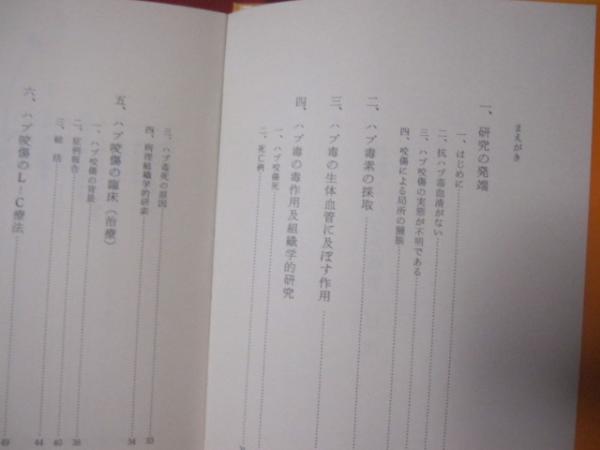 まえがき
一、研究の発端
一、はじめに
二、抗ハブ毒血清がない
三、ハブ咬傷の実態が不明である
四、咬傷による局所の腫脹
二、ハブ毒素の採取
三、ハブ毒の生体血管に及ぼす作用
四、ハブ毒の毒作用及組織学的研究
一、ハブ咬傷死
二、死亡例
三、ハブ毒死の原因 33
四、病理組織学的研索 34
五、ハブ咬傷の臨床(治療)
一、ハブ咬傷の背景 38
二、症例報告 40
三、総括 44
六、ハブ咬傷のL–C療法 49